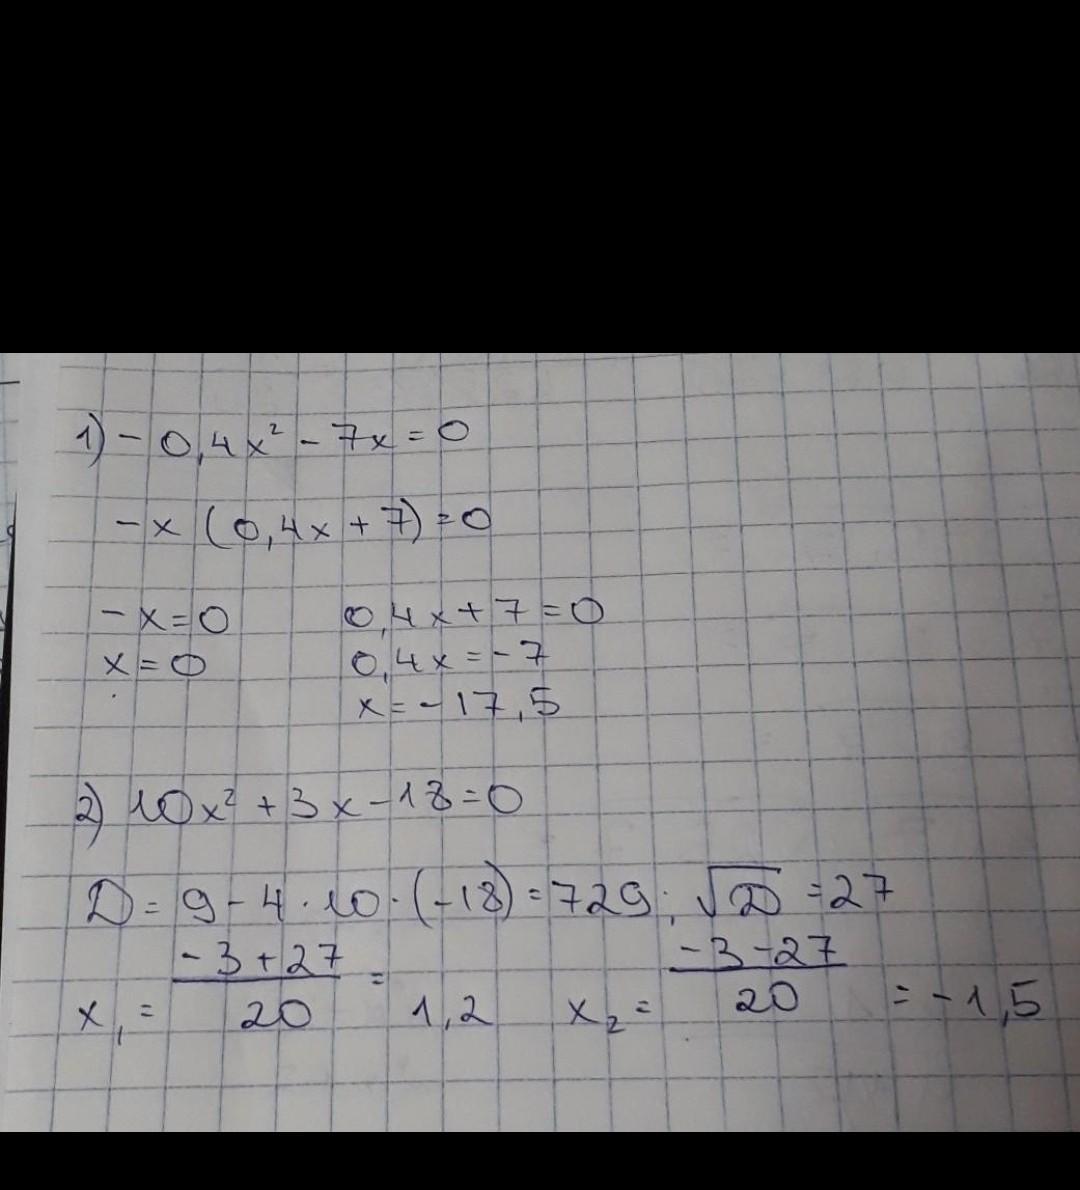 1) - 0,4x² - 7x = 0
- x (0,4x + 7) = 0
- x = 0 0,4x + 7 = 0
x = 0 0,4x = - 7
x = - 17,5
2) 10x² + 3x - 18 = 0
D = 9 - 4 · 10 · (-18) = 729; √D = 27
x₁ = (-3 + 27)/20 = 1,2 x₂ = (-3 - 27)/20 = - 1,5